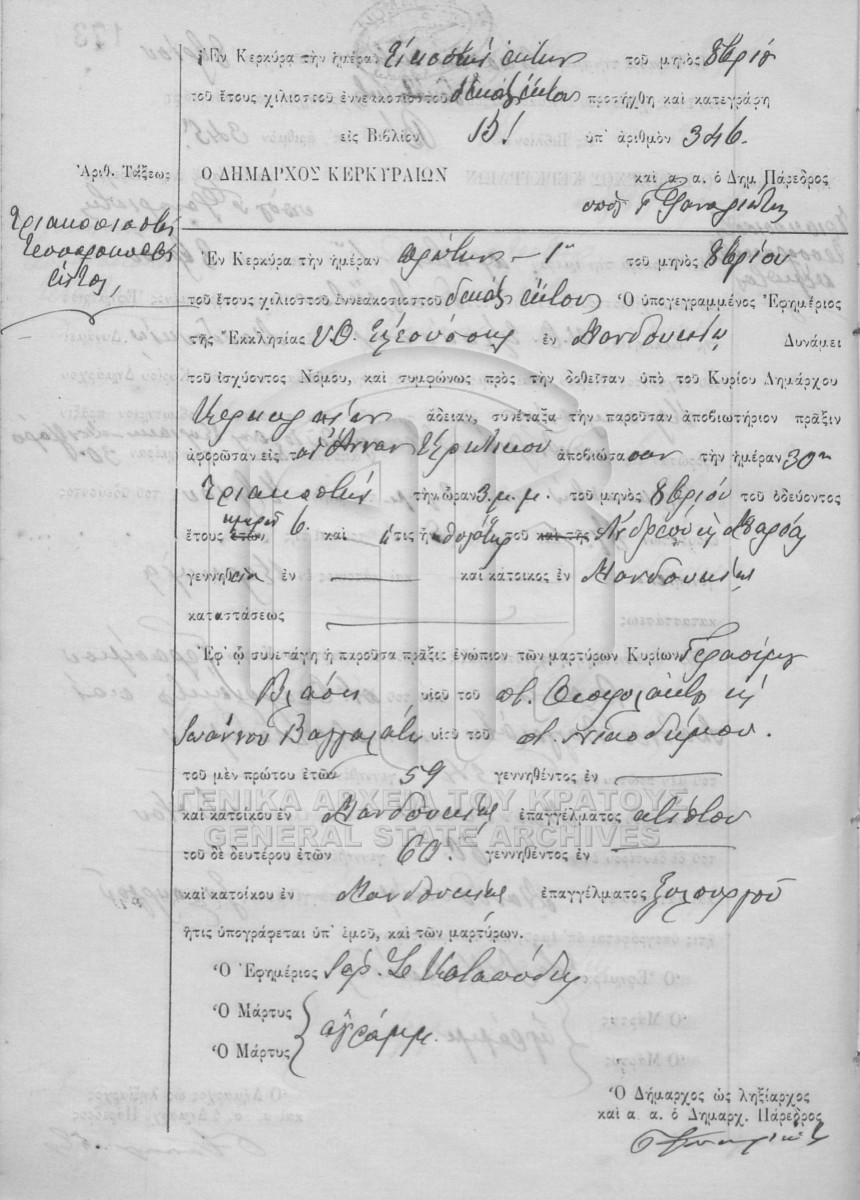 Ἐν Κερκύρᾳ τὴν ἡμέραν εἰκοστὴν ἕκτην τοῦ μηνὸς 8βρίου
τοῦ ἔτους χιλιοστοῦ ἐννεακοσιοστοῦ δεκάτου ἕκτου προσήχθη καὶ κατεγράφη
εἰς Βιβλίον Β! ὑπ' ἀριθμὸν 346.
Ἀριθ. Τάξεως Ο ΔΗΜΑΡΧΟΣ ΚΕΡΚΥΡΑΙΩΝ καὶ α. α. ὁ Δημ. Πάρεδρος
Τριακοσιοστὴ
τεσσαρακοστὴ
ἕκτη
Ἐν Κερκύρᾳ τὴν ἡμέραν πρώτην - 1ην τοῦ μηνὸς 8βρίου
τοῦ ἔτους χιλιοστοῦ ἐννεακοσιοστοῦ δεκάτου ἕκτου Ὁ ὑπογεγραμμένος Ἐφημέριος
τῆς Ἐκκλησίας Υ.Θ. Ἐλεούσης ἐν Μανδουκίῳ Δυνάμει
τοῦ ἰσχύοντος Νόμου, καὶ συμφώνως πρὸς τὴν δοθεῖσαν ὑπὸ τοῦ Κυρίου Δημάρχου
Κερκυραίων ἄδειαν, συνέταξα τὴν παροῦσαν ἀποβιωτήριον πρᾶξιν
ἀφορῶσαν εἰς τὴν Ἄνναν ἀποβιώσασαν τὴν ἡμέραν 30ην
Τριακοστὴν τὴν ὥραν 3 μ.μ. τοῦ μηνὸς 8βρίου τοῦ ὁδεύοντος
ἔτους ἐτῶν ἡμερῶν 6. καὶ ἥτις ἦν θυγάτηρ τοῦ καὶ τῆς Ἀνδρέου
γεννηθεῖσα ἐν καὶ κάτοικος ἐν Μανδουκίῳ
καταστάσεως
Ἐφ' ᾧ συνετάγη ἡ παροῦσα πρᾶξις ἐνώπιον τῶν μαρτύρων Κυρίων Γερασίμου
Βλάση υἱοῦ τοῦ ποτ. Θεοφυλάκτου καὶ
Ἰωάννου υἱοῦ τοῦ ποτ. Νικοδήμου.
τοῦ μὲν πρώτου ἐτῶν 59 γεννηθέντος ἐν
καὶ κατοίκου ἐν Μανδουκίῳ ἐπαγγέλματος
τοῦ δὲ δευτέρου ἐτῶν 60. γεννηθέντος ἐν
καὶ κατοίκου ἐν Μανδουκίῳ ἐπαγγέλματος ξυλουργοῦ
ἥτις ὑπογράφεται ὑπ' ἐμοῦ, καὶ τῶν μαρτύρων.
Ὁ Ἐφημέριος Ἱερ. Σ. Καταπόδης
Ὁ Μάρτυς
ἀγράμμ.
Ὁ Μάρτυς
Ὁ Δήμαρχος ὡς ληξίαρχος
καὶ α. α. ὁ Δημαρχ. Πάρεδρος
ΓΕΝΙΚΑ ΑΡΧΕΙΑ ΤΟΥ ΚΡΑΤΟΥΣ
GENERAL STATE ARCHIVES